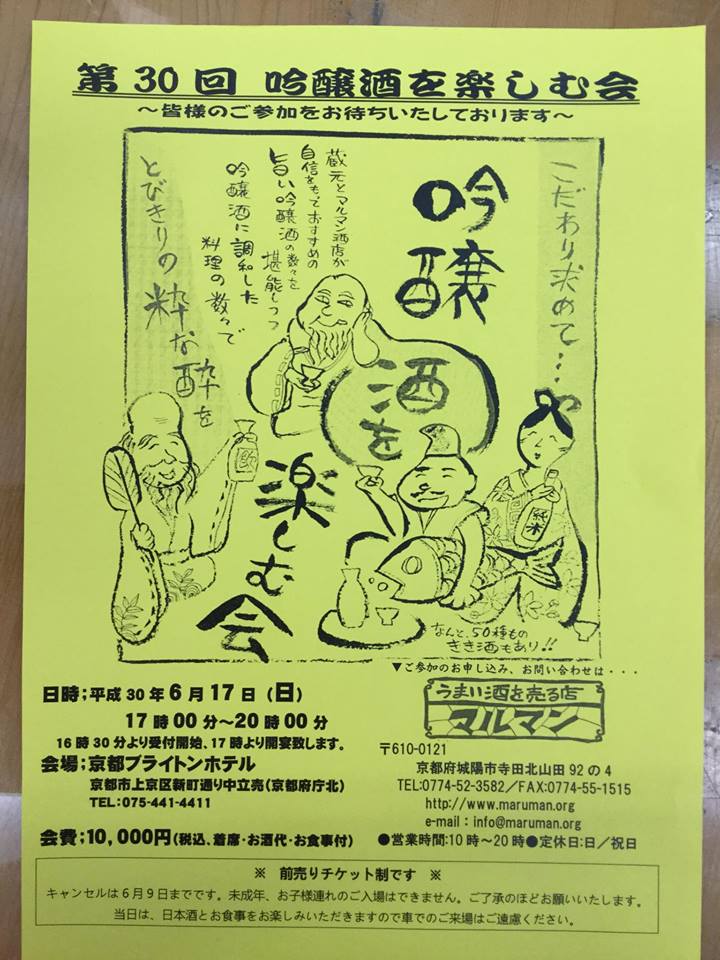 第30回 吟醸酒を楽しむ会
～皆様のご参加をお待ちいたしております～
こだわり求めて…
吟醸
酒を
楽しむ会
蔵元とマルマン酒店が
自信をもっておすすめの
旨い吟醸酒の数々を
堪能しつつ
吟醸酒に調和した
料理の数々で
とびきりの粋な酔を
純米
なんと、50種もの
きき酒もあり!!
▼ご参加のお申し込み、お問い合わせは・・・
うまい酒を売る店
マルマン
〒610-0121
京都府城陽市寺田北山田92の4
TEL:0774-52-3582／FAX:0774-55-1515
http://www.maruman.org
e-mail：info@maruman.org
●営業時間:10時～20時●定休日:日／祝日
日時；平成30年6月17日（日）
17時00分～20時00分
16時30分より受付開始、17時より開宴致します。
会場；京都ブライトンホテル
京都市上京区新町通り中立売（京都府庁北）
TEL：075-441-4411
会費；10,000円（税込、着席・お酒代・お食事付）
※ 前売りチケット制です ※
キャンセルは6月9日までです。未成年、お子様連れのご入場はできません。ご了承のほどお願いいたします。
当日は、日本酒とお食事をお楽しみいただきますので車でのご来場はご遠慮ください。